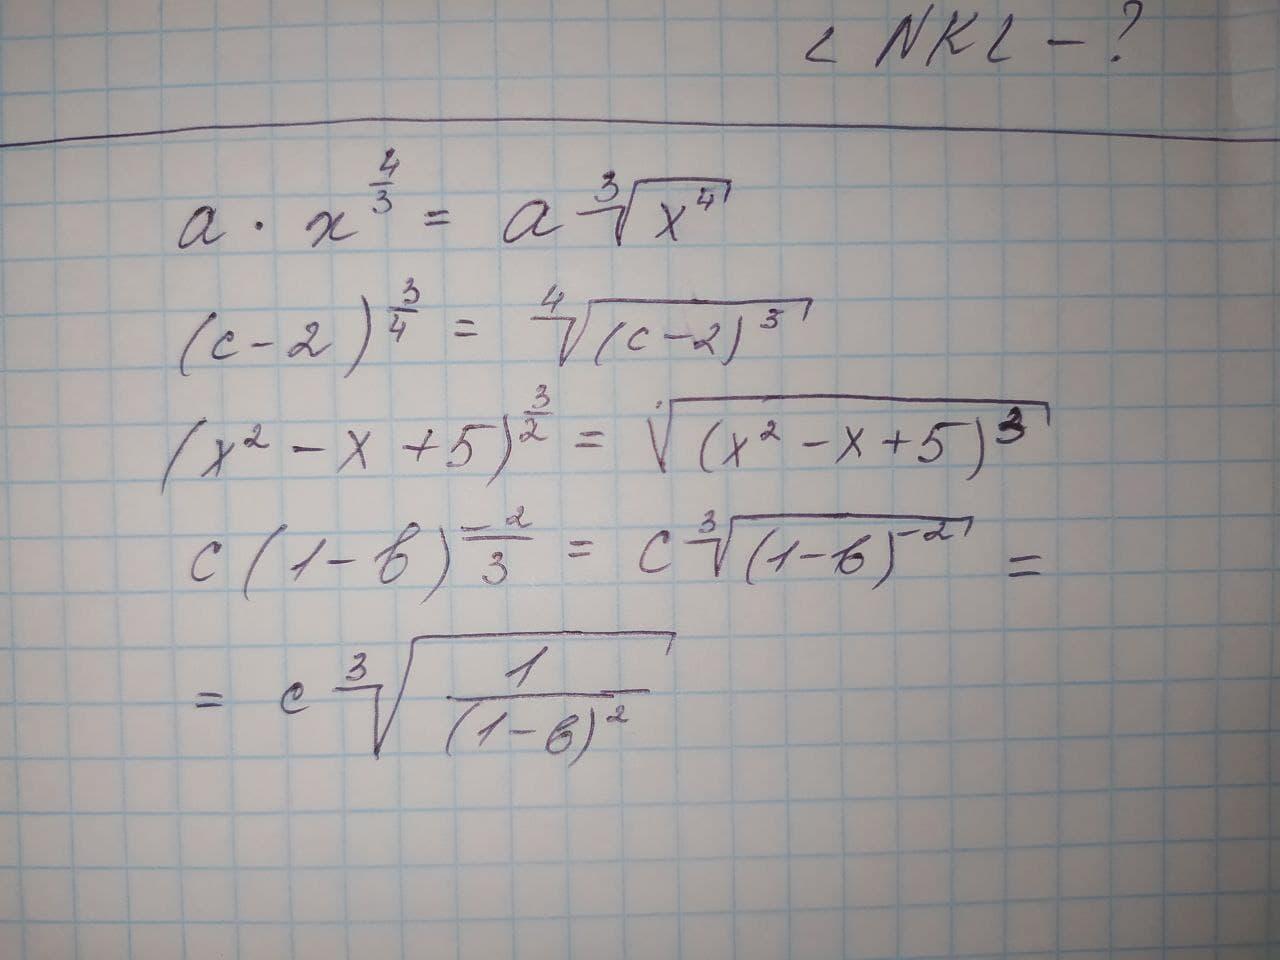 ∠ NKL - ?
a · x^(4/3) = a ∛(x⁴)
(c - 2)^(3/4) = ∜((c - 2)³)
(x² - x + 5)^(3/2) = √((x² - x + 5)³)
c (1 - b)^(-2/3) = c ∛((1 - b)⁻²) =
= c ∛(1/(1 - b)²)